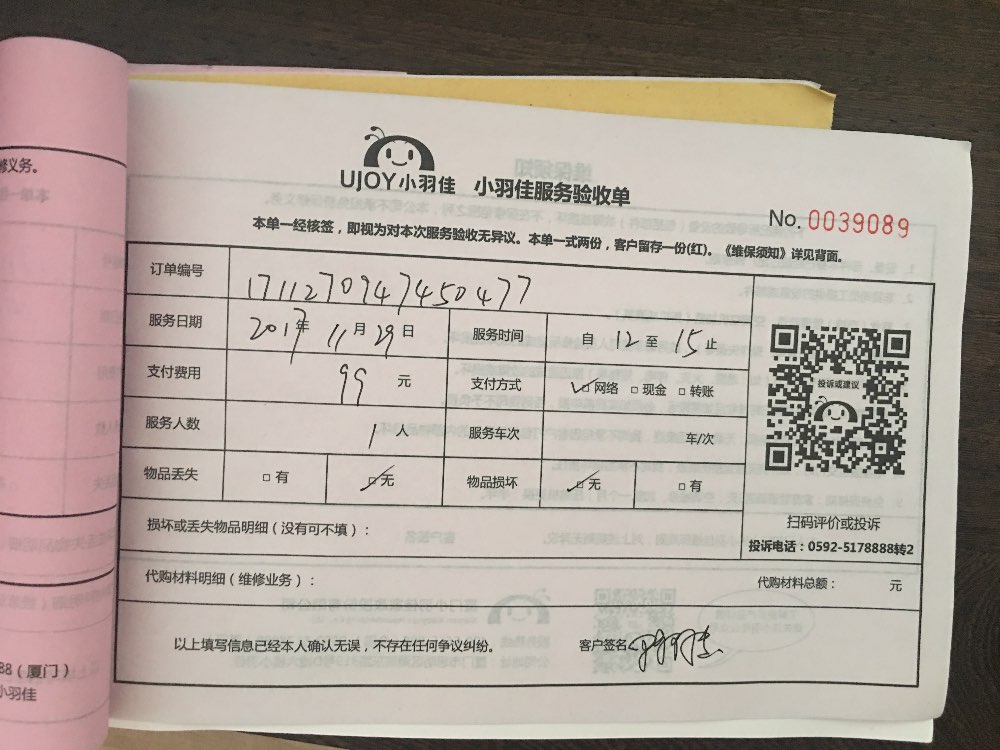 修义务。
UJOY小羽佳 小羽佳服务验收单
No. 0039089
本单一经核签，即视为对本次服务验收无异议。本单一式两份，客户留存一份(红)。《维保须知》详见背面。
订单编号 1711270947450477
服务日期 2017年 11月 29日 服务时间 自 12 至 15 止
支付费用 99 元 支付方式 □网络 □现金 □转账
服务人数 1 人 服务车次 车/次
物品丢失 □有 □无 物品损坏 □无 □有
投诉或建议
扫码评价或投诉
投诉电话：0592-5178888转2
损坏或丢失物品明细（没有可不填）：
代购材料明细（维修业务）： 代购材料总额： 元
以上填写信息已经本人确认无误，不存在任何争议纠纷。 客户签名
88（厦门）
小羽佳